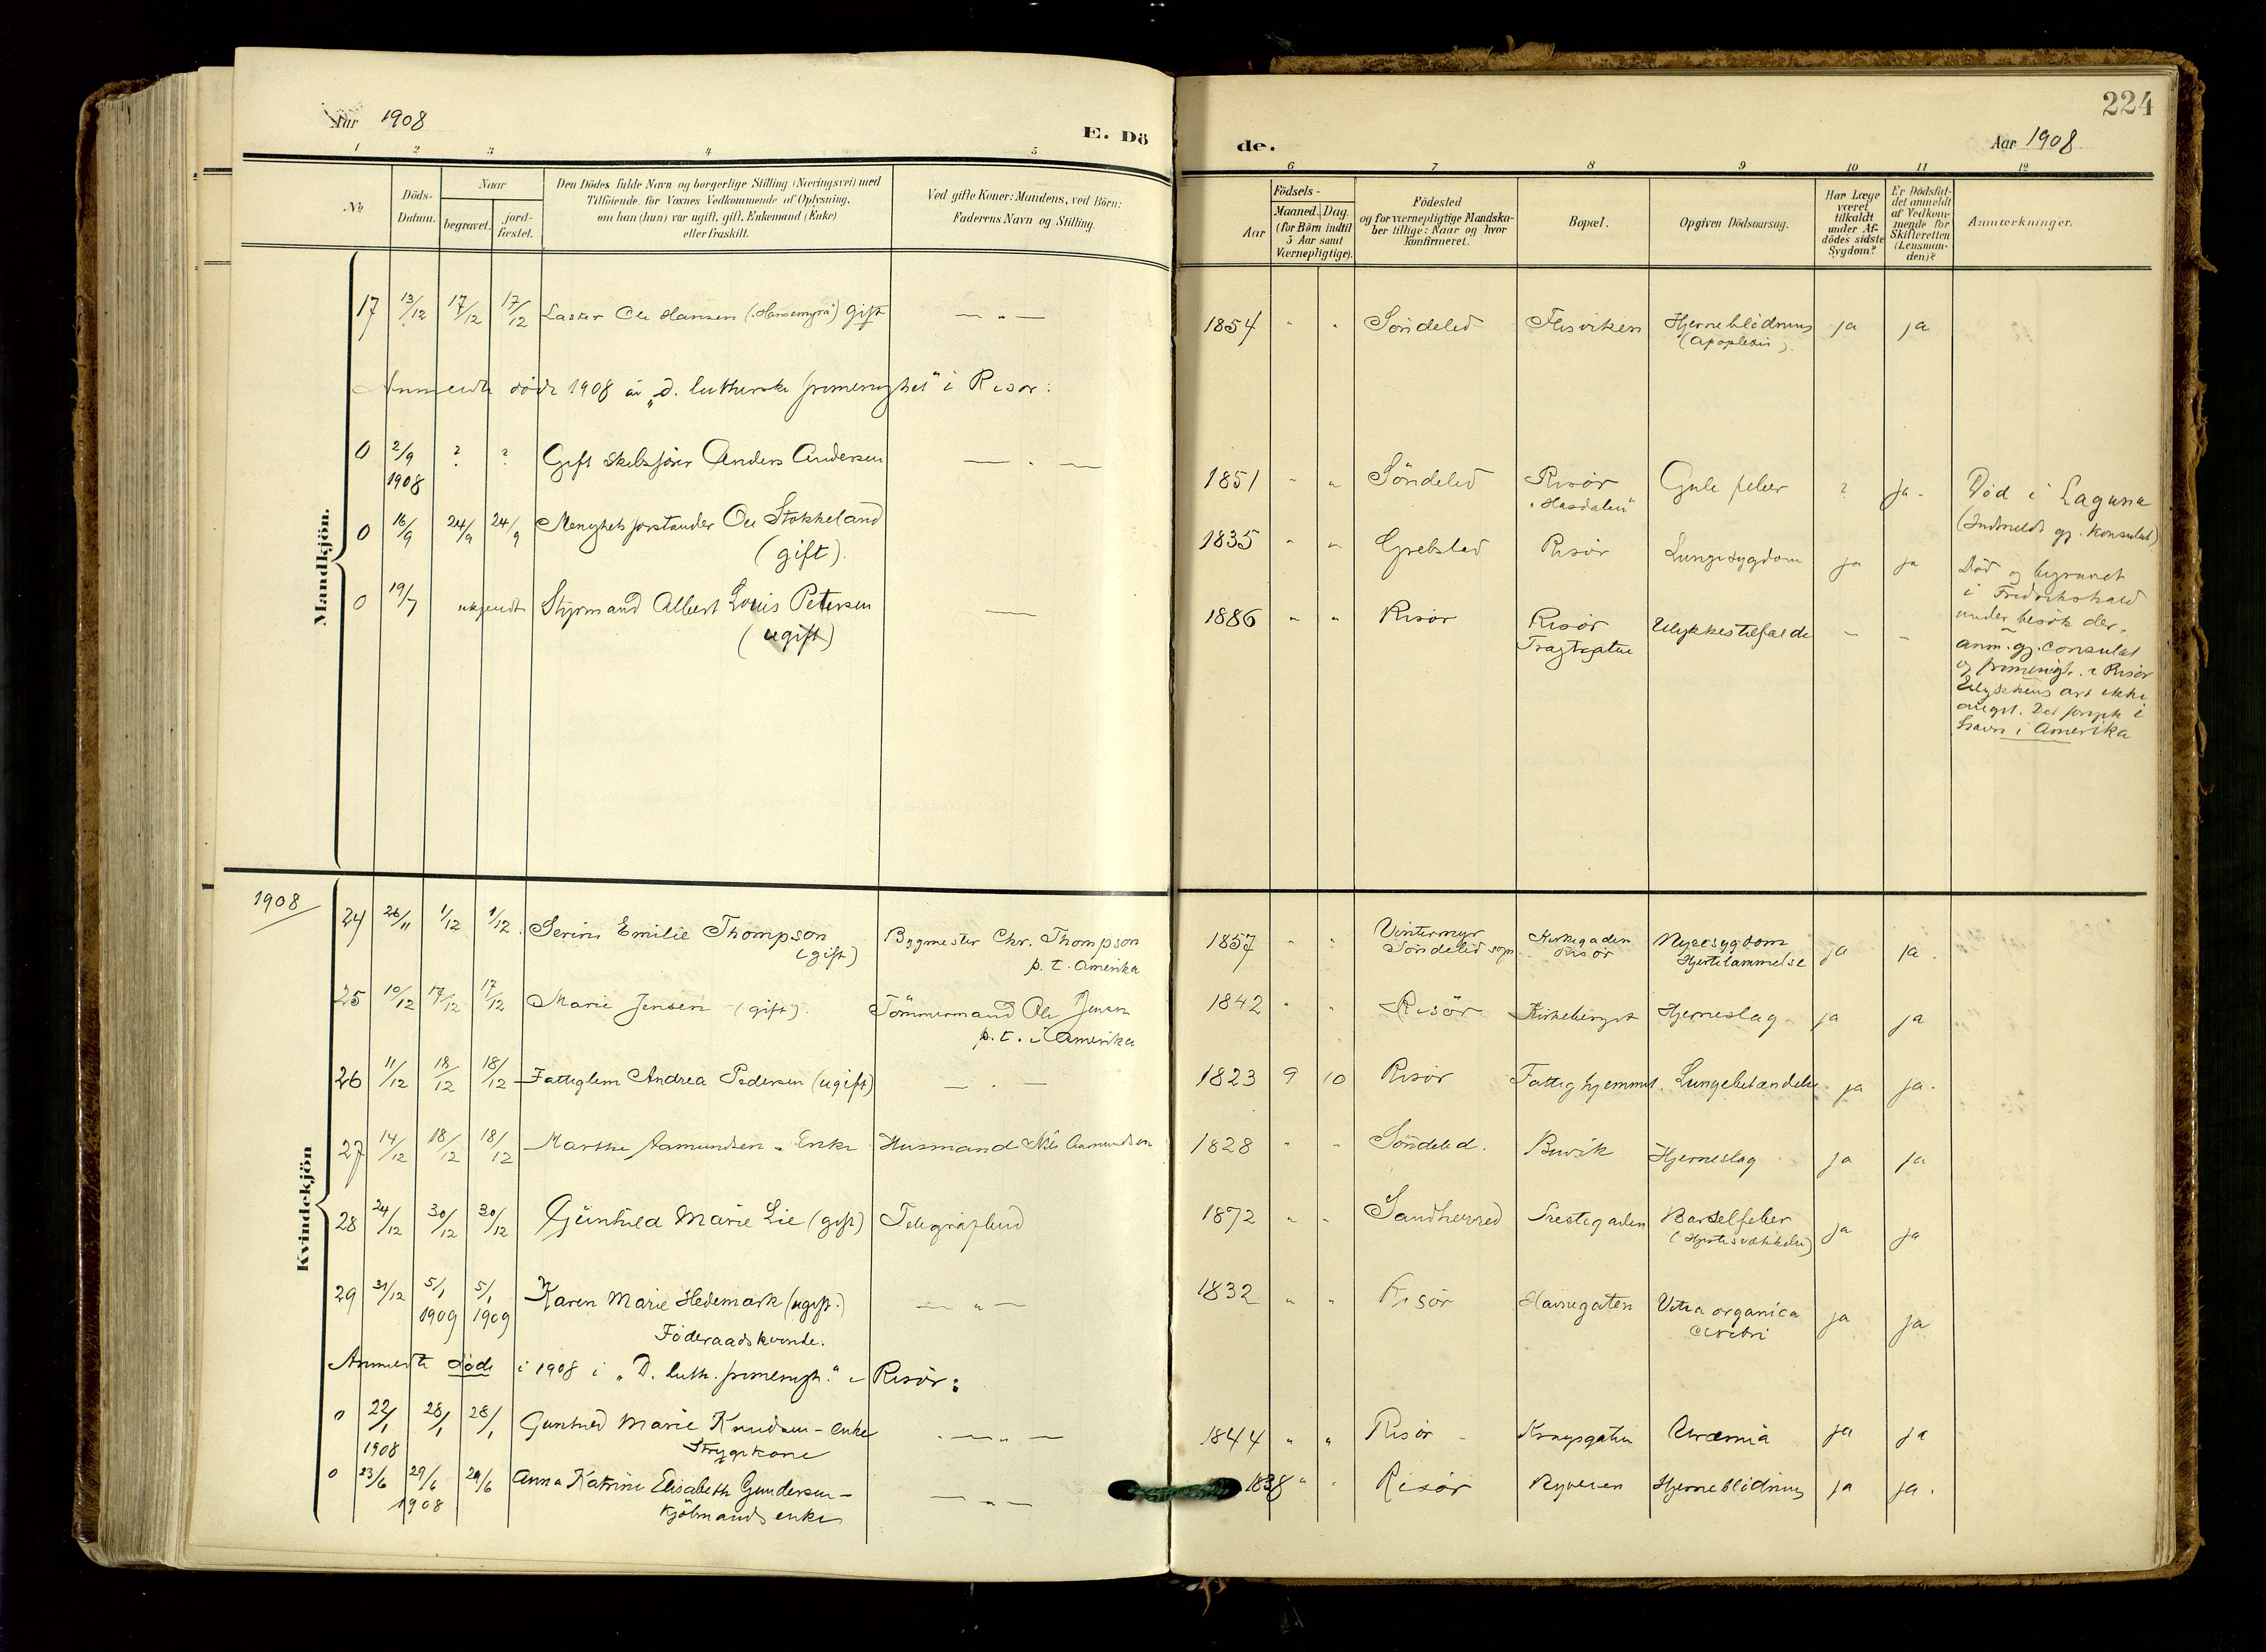 Aar 1908
E. Dö
1 2 3 4 5
№
Döds-Datum.
Naar
begravet.
jord-fæstet.
Den Dödes fulde Navn og borgerlige Stilling (Næringsvei) med
Tilföiende, for Voxnes Vedkommende af Oplysning,
om han (hun) var ugift, gift, Enkemand (Enke)
eller fraskilt.
Ved gifte Koner: Mandens, ved Börn:
Faderens Navn og Stilling.
Mandkjön.
17 13/12 17/12 17/12 Ole Hansen gift — „ —
Anmeldte døde 1908 av „D. lutherske frimenighet" i Risør:
0 2/9 1908 ? ? Gift skibsfører Anders Andersen — „ —
0 16/9 24/9 24/9 Menighetsforstander Ole Stokkeland
(gift).
0 19/7 ukjendt Styrmand Albert Louis Petersen —
(ugift)
1908
Kvindekjön
24 26/11 1/12 1/12. Serine Emilie Thompson Bygmester Chr. Thompson
(gift) p. t. Amerika
25 10/12 17/12 17/12 Marie Jensen – (gift). Tömmermand Ole Jensen
p. t. i Amerika
26 11/12 18/12 18/12 Fattiglem Andrea Pedersen (ugift) — „ —
27 14/12 18/12 18/12 Marthe Aamundsen – Enke Husmand Nils Aamundsen
28 24/12 30/12 30/12 Gunhild Marie Lie (gift) Telegrafbud
29 31/12 5/1 1909 5/1 1909 Karen Marie Hedemark (ugift.) — „ —
Föderaadskvinde.
Anmeldte døde i 1908 i „D. luth. frimenigh." i Risør:
0 22/1 1908 28/1 28/1 Gunhild Marie Knudsen – enke — „ —
Strygekone
0 23/6 29/6 1908 29/6 Anna Katrine Elisabeth Gundersen – — „ —
Kjöbmands enke
224
de.
Aar 1908
6 7 8 9 10 11 12
Födsels-
Aar
Maaned. Dag.
(for Börn indtil
5 Aar samt
Værnepligtige).
Födested
og for værnepligtige Mandska-
ber tillige: Naar og hvor
konfirmeret.
Bopæl.
Opgiven Dödsaarsag.
Har Læge
været
tilkaldt
under Af-
dödes sidste
Sygdom?
Er Dödsfal-
det anmeldt
af Vedkom-
mende for
Skifteretten
(Lensman-
den)?
Anmærkninger.
1854 „ „ Söndeled Hjerneblödning ja ja
(Apoplexi).
1851 „ „ Söndeled Risør Gule feber ? ja. Död i Laguna
„Hasdalen" (Indmeldt gj. Konsulat)
1835 „ „ Risør Lungesygdom ja ja Död og begravet
i Fredrikshald
under besök der.
1886 „ „ Risør Risør Ulykkestilfælde – –
Tragtegaten
anm. gj. Consulat
og frimenigh. i Risør
Ulykkens art ikke
angit. Det foregik i
havn i Amerika
1857 „ „ Vintermyr Kirkegaden Nyresygdom ja ja.
Söndeled sogn Risör Hjertelammelse
1842 „ „ Risör Kirkeberget Hjerneslag ja ja
1823 9 10 Risør Fattighjemmet. Lungebetændelse ja ja.
1828 „ „ Söndeled. Buvik Hjerneslag ja ja
1872 „ „ Sandherred Prestegaden Barselfeber ja ja
(Hjertesvækkelse)
1832 „ „ Risør Havnegaten Vitia organica ja ja
cerebri
1844 „ „ Risør Kragsgaten Uræmia ja ja
1838 „ „ Risør Hjerneblödning ja ja.